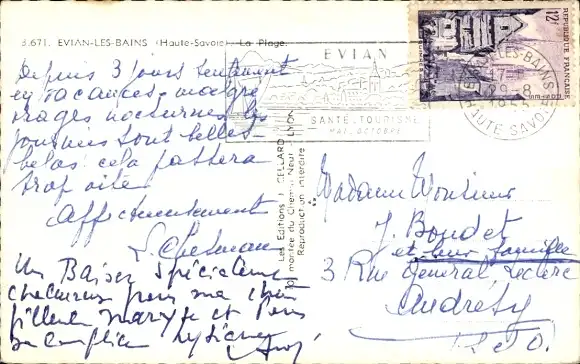 3.671. EVIAN-LES-BAINS (Haute-Savoie). La Plage.
Depuis 3 jours seulement
en vacances malgré
orages nocturnes les
journées sont belles
hélas cela passera
trop vite
Affectueusement
S. Chelman
Un Baiser spécial
pour ma chère
filleule Maryse et pour
sa complice Lysiane
EVIAN
SANTÉ-TOURISME
MAI, OCTOBRE
Les Editions GELLARD LYON
montée du Chemin Neuf
Reproduction interdite
12F
REPUBLIQUE FRANÇAISE
EVIAN-LES-BAINS
17
29-8
1955
HAUTE SAVOIE
Madame Monsieur
J. Boudet
et leur famille
3 Rue Général Leclerc
Andrésy
S. et O.